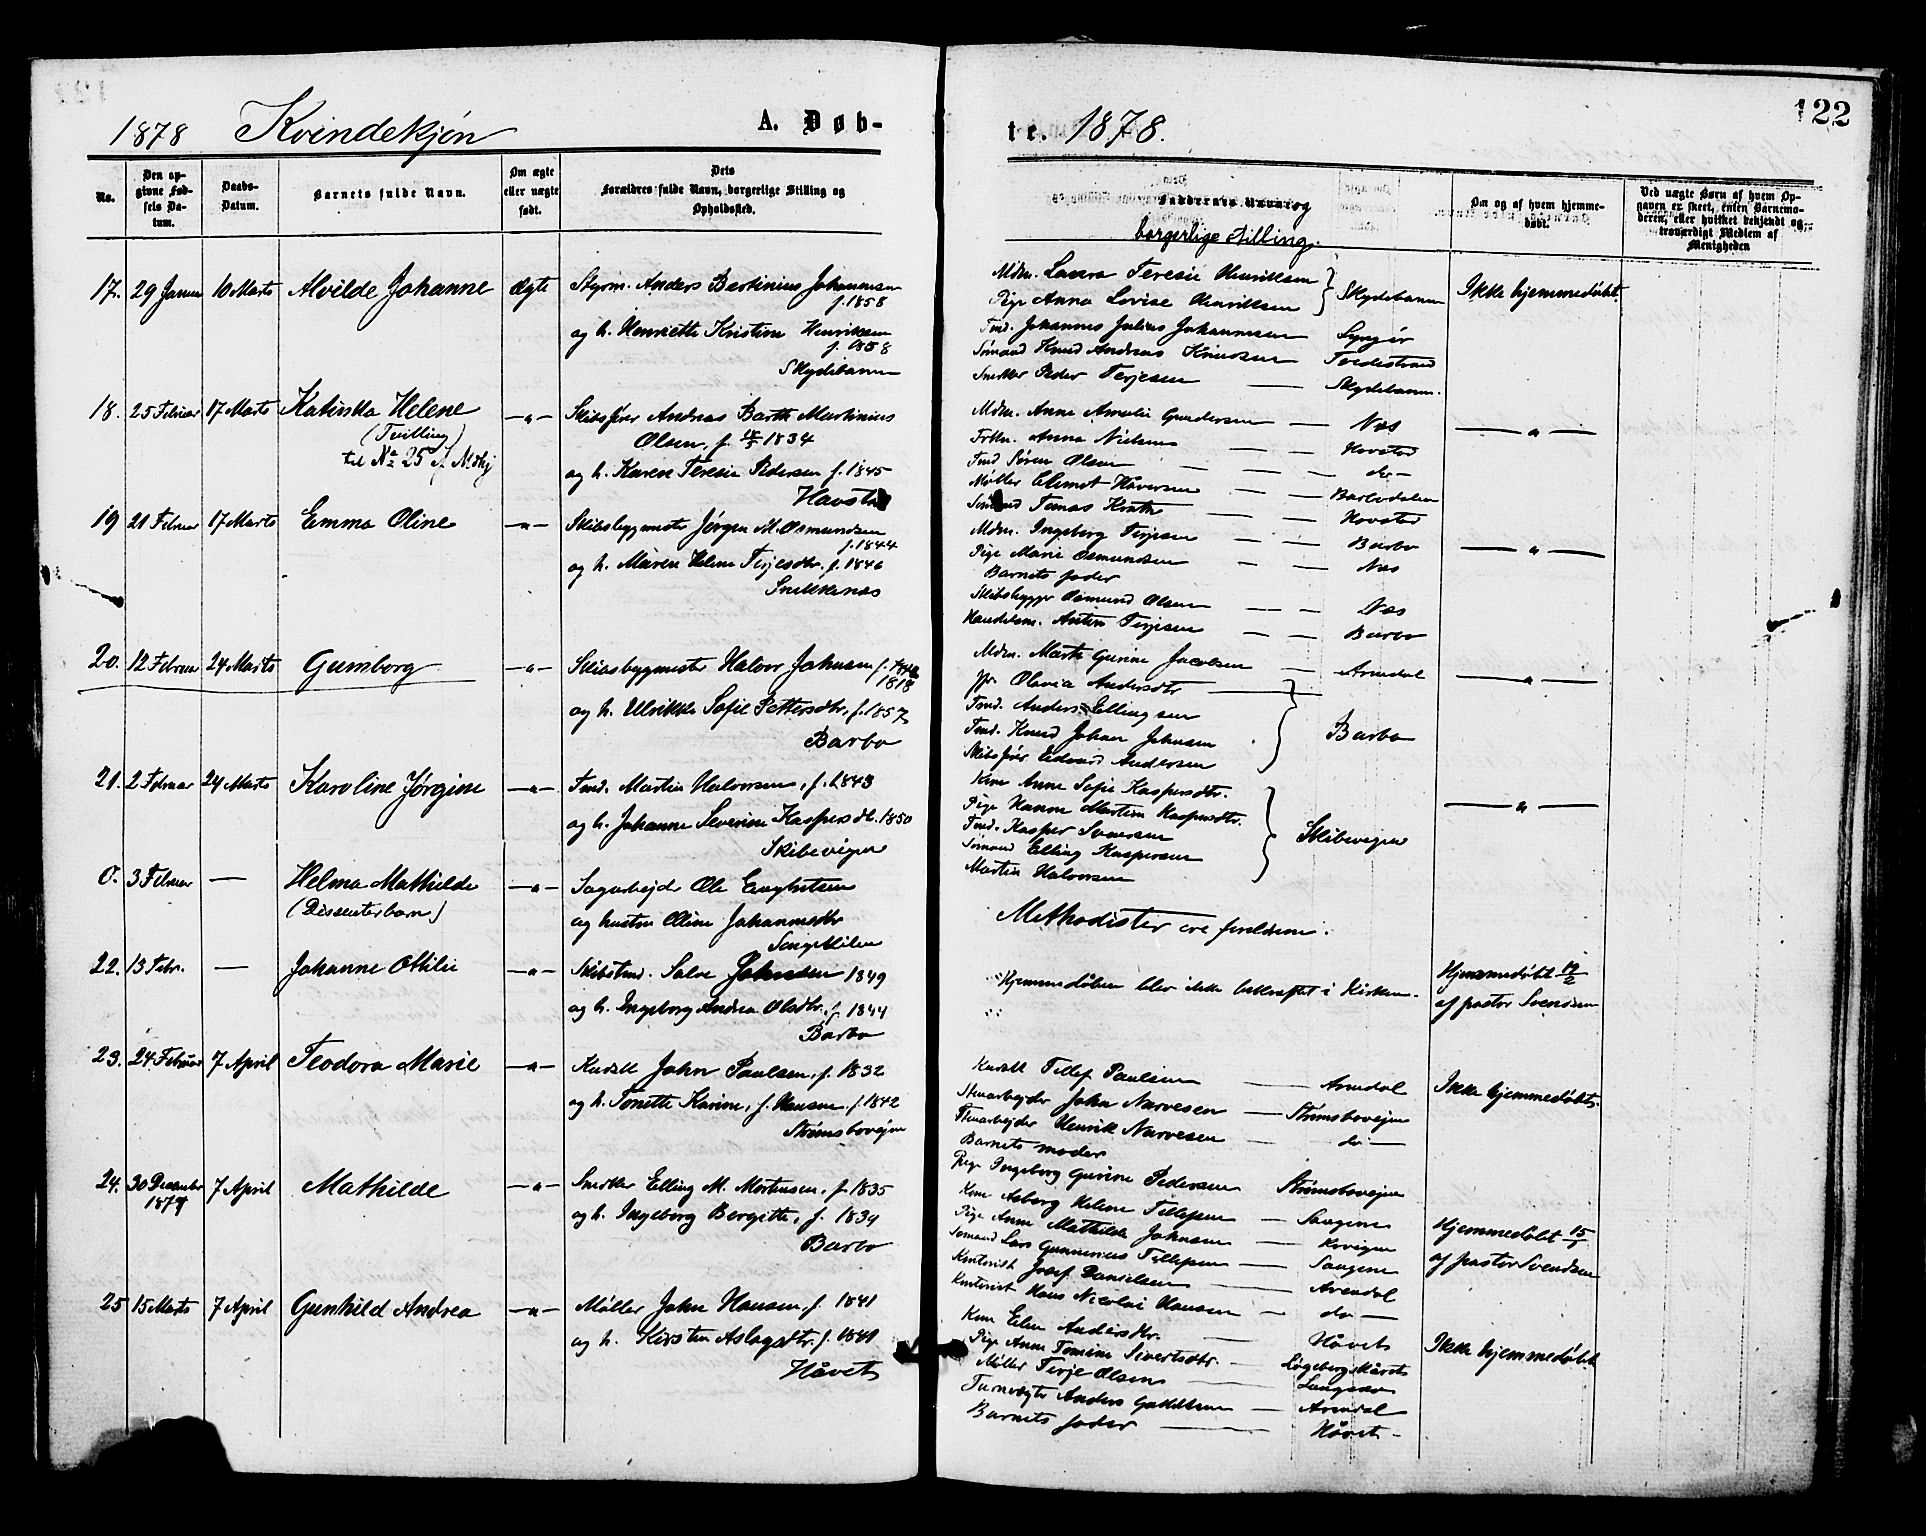 122
1878 Kvindekjøn A. Døb-
te. 1878.
No.
Den op-
givne Fød-
sels Da-
tum.
Daabs-
Datum.
Barnets fulde Navn.
Om ægte
eller uægte
født.
Dets
Forældres fulde Navn, borgerlige Stilling og
Opholdssted.
Faddernes Navne og
borgerlige Stilling.
Om og af hvem hjemme-
døbt.
Ved uægte Børn af hvem Op-
gaven er skeet, enten Barnemo-
deren, eller hvilket bekjendt og
troværdigt Medlem af
Menigheden
17. 29 Januar 10 Marts Alvilde Johanne ægte Styrm. Anders Bertinius Johannesen
f. 1858
og h. Henriette Kristine Henriksen
f. 1858
Skydebanen
Mdm. Laura Teresie Henriksen
Pige Anna Lovise Henriksen Skydebanen
Tmd. Johannes Julius Johannesen Lyngør
Sømand Knud Andreas Knudsen Tvedestrand
Snekker Peder Terjesen — Skydebanen.
Ikke hjemmedøbt
18. 25 Februar 17 Marts Katinka Helene —"— Skibsfører Andreas Barth Martinius
(Tvilling) Olsen, f. 1834
til No 25 f. Mdkj og h. Karen Teresie Pedersen f. 1845
Havstad
Mdm. Anne Amalie Gundersen — Næs
Frkn. Anna Nielsen — — Hovstad
Tmd Søren Olsen — — — do —
Møller Clemet Håversen — — Barbodalen
Sømand Tomas Knath — — — Hovstad
— " —
19 21 Februar 17 Marts Emma Oline —"— Skibsbygmester Jørgen M. Osmundsen
f. 1844
og h. Maren Helene Terjesdtr. f. 1846
Snekkenæs
Mdm. Ingeborg Terjesen — — Barbo
Pige Marie Osmundsen — — Næs
Barnets fader
Skibsbygger Osmund Olsen — — Næs
Handelsm. Anton Terjesen — — Barbo
— " —
20. 12 Februar 24 Marts Gumborg —"— Skibsbygmester Halvor Johnsen f.
1818
og h. Ullrikke Sofie Pettersdtr, f. 1857
Barbo
Mdm. Marth Gurine Jacobsen — Arendal
Olavia Andersdtr —
Tmd. Anders Ellingsen
Tmd. Knud Johan Johnsen
Skibsfører Edvard Andersen
Barbo
— " —
21. 2 Februar 24 Marts Karoline Jørgine —"— Tmd. Martin Halvorsen, f. 1843
og h. Johanne Severine Kaspersdt. 1850
Skibevigen
Kone Anne Sofie Kaspersdtr.
Pige Hanne Martine Kaspersdtr.
Tmd. Kasper
Sømand Elling Kaspersen
Martin Halvorsen
Skibevigen
— " —
0. 3 Februar — Helma Mathilde —"— Sagarbejder Ole Engbretsen
(Dissenterbarn) og hustru Oline Johannesdtr
Songekilen
Methodister ere forældrene.
22. 13 Febr. — Johanne Ottilie —"— Skibstmd. Salve Johnsen 1849
og h. Ingeborg Andrea Olsdtr. f. 1844
Barbo
Hjemmedåben blev ikke bekræftet i Kirken.
Hjemmedøbt 19/2
af pastor Svendsen
23. 24 Februar 7 April Teodora Marie —"— Kudsk John Paulsen, f. 1832
og h. Tonette Karine, f. Hansen, f. 1842
Strømsbovejen
Kudsk Tellef Paulsen — Arendal
Stenarbejder John Narvesen — Strømsbovejen
Stenarbejder Henrik Narvesen — do —
Barnets moder
Pige Ingeborg Gurine Pedersen Strømsbovejen
Ikke hjemmedøbt.
24. 30 December 7 April Mathilde —"— Snekker Elling M. Mortensen, f. 1835
1877 og h. Ingeborg Bergitte, f. 1839
Barbo
Kone Asborg Helene Tellefsen — Saugene
Pige Anne Mathilde Johnsen — Krøgen
Sømand Lars Gunnerius Tellefsen — Saugene
Kontorist Josef Danielsen — Arendal
Kontorist Hans Nicolai Hansen — do —
Hjemmedøbt 15/1
af pastor Svendsen
25 15 Marts 7 April Gunhild Andrea —"— Møller John Hansen, f. 1841
og h. Kirsten Aslagsdtr, f. 1841
Håvet
Kone Elen Andersdtr. — Håvet
Pige Anne Tomine Sivertsdtr. — Løgeberg Håvet
Møller Terje Olsen — Langsæ
Taarnvægter Anders — Arendal
Barnets fader — Håvet —
Ikke hjemmedøbt